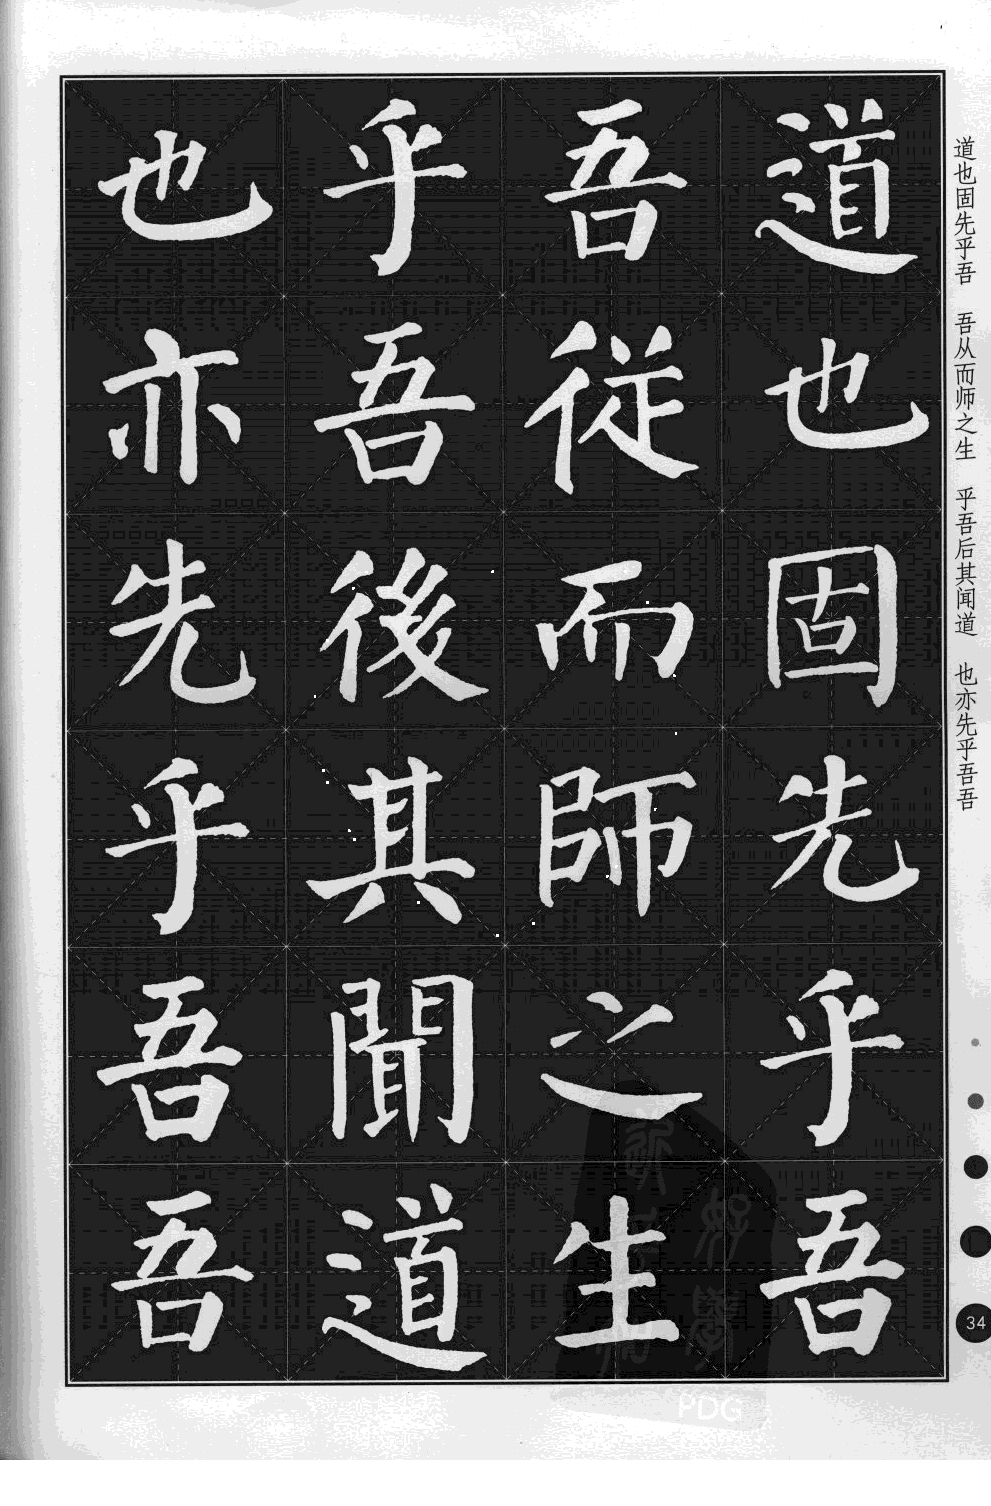 道也固先乎吾
吾從而師之生
乎吾後其聞道
也亦先乎吾吾
道也固先乎吾 吾从而师之生 乎吾后其闻道 也亦先乎吾吾
34
PDG